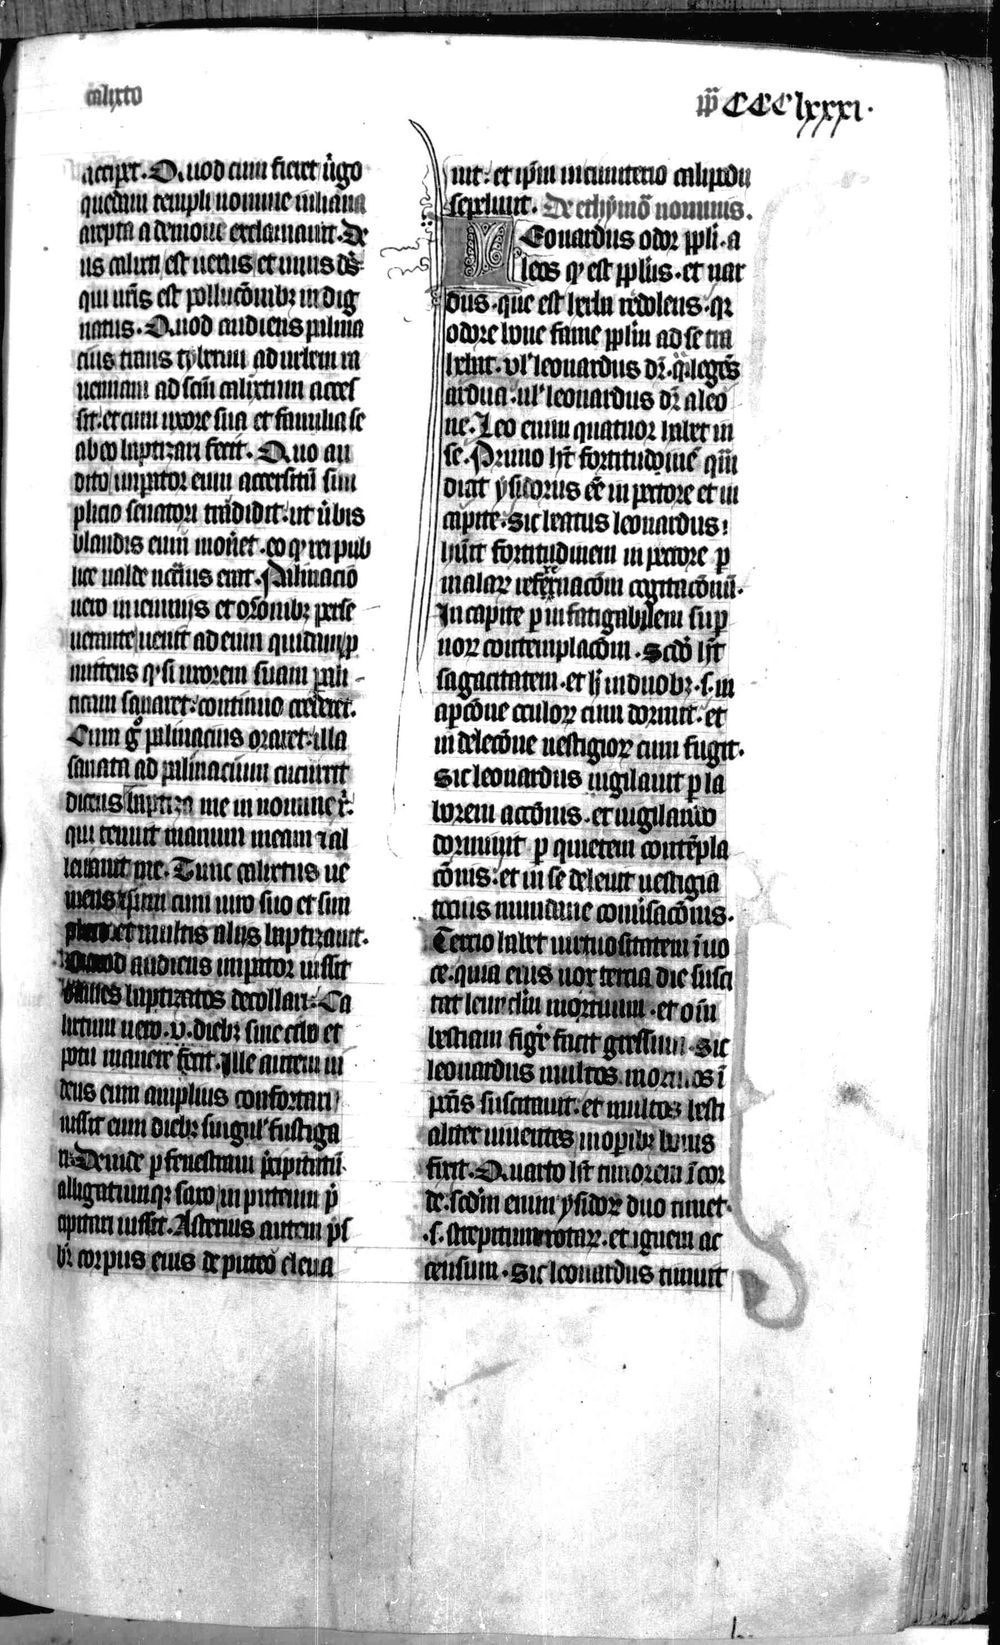 calixto
CCClxxxi.
accepit. Quod cum fieret v̓go
quedam templi nomine iuliana
arrepta a demone exclamauit. De
us calixti est uerus et uiuus dñs
qui urīs est pollucōnibꝫ indig
natus. Quod audiens palma
cius trans tyberim ad urbem ra
uennam ad scm̄ calixtum acces
sit. et cum uxore sua et familia se
ab eo baptizari fecit. Quo au
dito imperator eum accersitū sim
plicio senatori tradidit. ut v̓bis
blandis eum moneret. eo ꝙ rei pub
lice ualde nccīus erat. Palmacio
uero in ieiuniis et orōnibꝫ perse
uerante uenit ad eum quidam ꝓ
mittens ꝙ si uxorem suam parali
ticam sanaret. continuo crederet.
Cum gͦ palmacius oraret. illa
sanata ad palmacium cucurrit
dicens baptiza me in nomine xp̄i
qui tenuit manum meam ⁊ al
leuauit me. Tunc calixtus ue
niens ipsam cum uiro suo et sim
plicio et multis aliis baptizauit.
Quod audiens imperator iussit
omnes baptizatos decollari. Ca
lixtum uero .v. diebꝫ sine cibo et
potu manere fecit. Ille autem ui
dens eum amplius confortari
iussit eum diebꝫ singulˀ fustiga
ri. Deinde ꝑ fenestram p̄cipitatū
alligatumqꝫ saxo in puteum p̄
cipitari iussit. Asterius autem p̄s
br̄ corpus eius de puteo eleua
uit. et ip̄m in cimiterio calipodii
sepeliuit. De ethymō nominis.
Leonardus odor ppli. a
leos ꝙ est pplus. et nar
dus. que est herba redolens. qꝛ
odore bone fame pplm ad se tra
hebat. vlˀ leonardus dr̄. qͣi legēs
ardua. ulˀ leonardus dr̄ a leo
ne. Leo enim quatuor habet in
se. Primo hȝ fortitudinē qm̄
dicit ysidorus eē in pectore et in
capite. Sic beatus leonardus
huit fortitudinem in pectore ꝑ
malaꝝ refrenacōm cogitacōnū.
In capite ꝑ infatigabilem sup̄
noꝝ contemplacōm. Scdo hȝ
sagacitatem. et hȝ in duobꝫ .s. in
apcōne oculoꝝ cum dormit. et
in delecōne uestigioꝝ cum fugit.
Sic leonardus uigilauit ꝑ la
borem accōnis. et uigilando
dormiuit ꝑ quietem contēpla
cōnis. et in se deleuit uestigia
tocius mundane conu̓sacōnis.
Tercio habet uirtuositatem ī uo
ce. quia eius uox tercia die susci
tat leunculū mortuum. et om̄
bestiam figeˀ facit gressum. Sic
leonardus multos mortuos ī
pctīs suscitauit. et multos besti
aliter uiuentes in opibꝫ bonis
fixit. Quarto hȝ timorem ī cor
de. scdm enim ysidoꝝ duo timet.
.s. strepitum rotaꝝ. et ignem ac
censum. Sic leonardus timuit